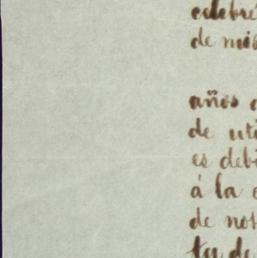 celebré
de mis
años
de uti
es debi
á la
de nos
tu de